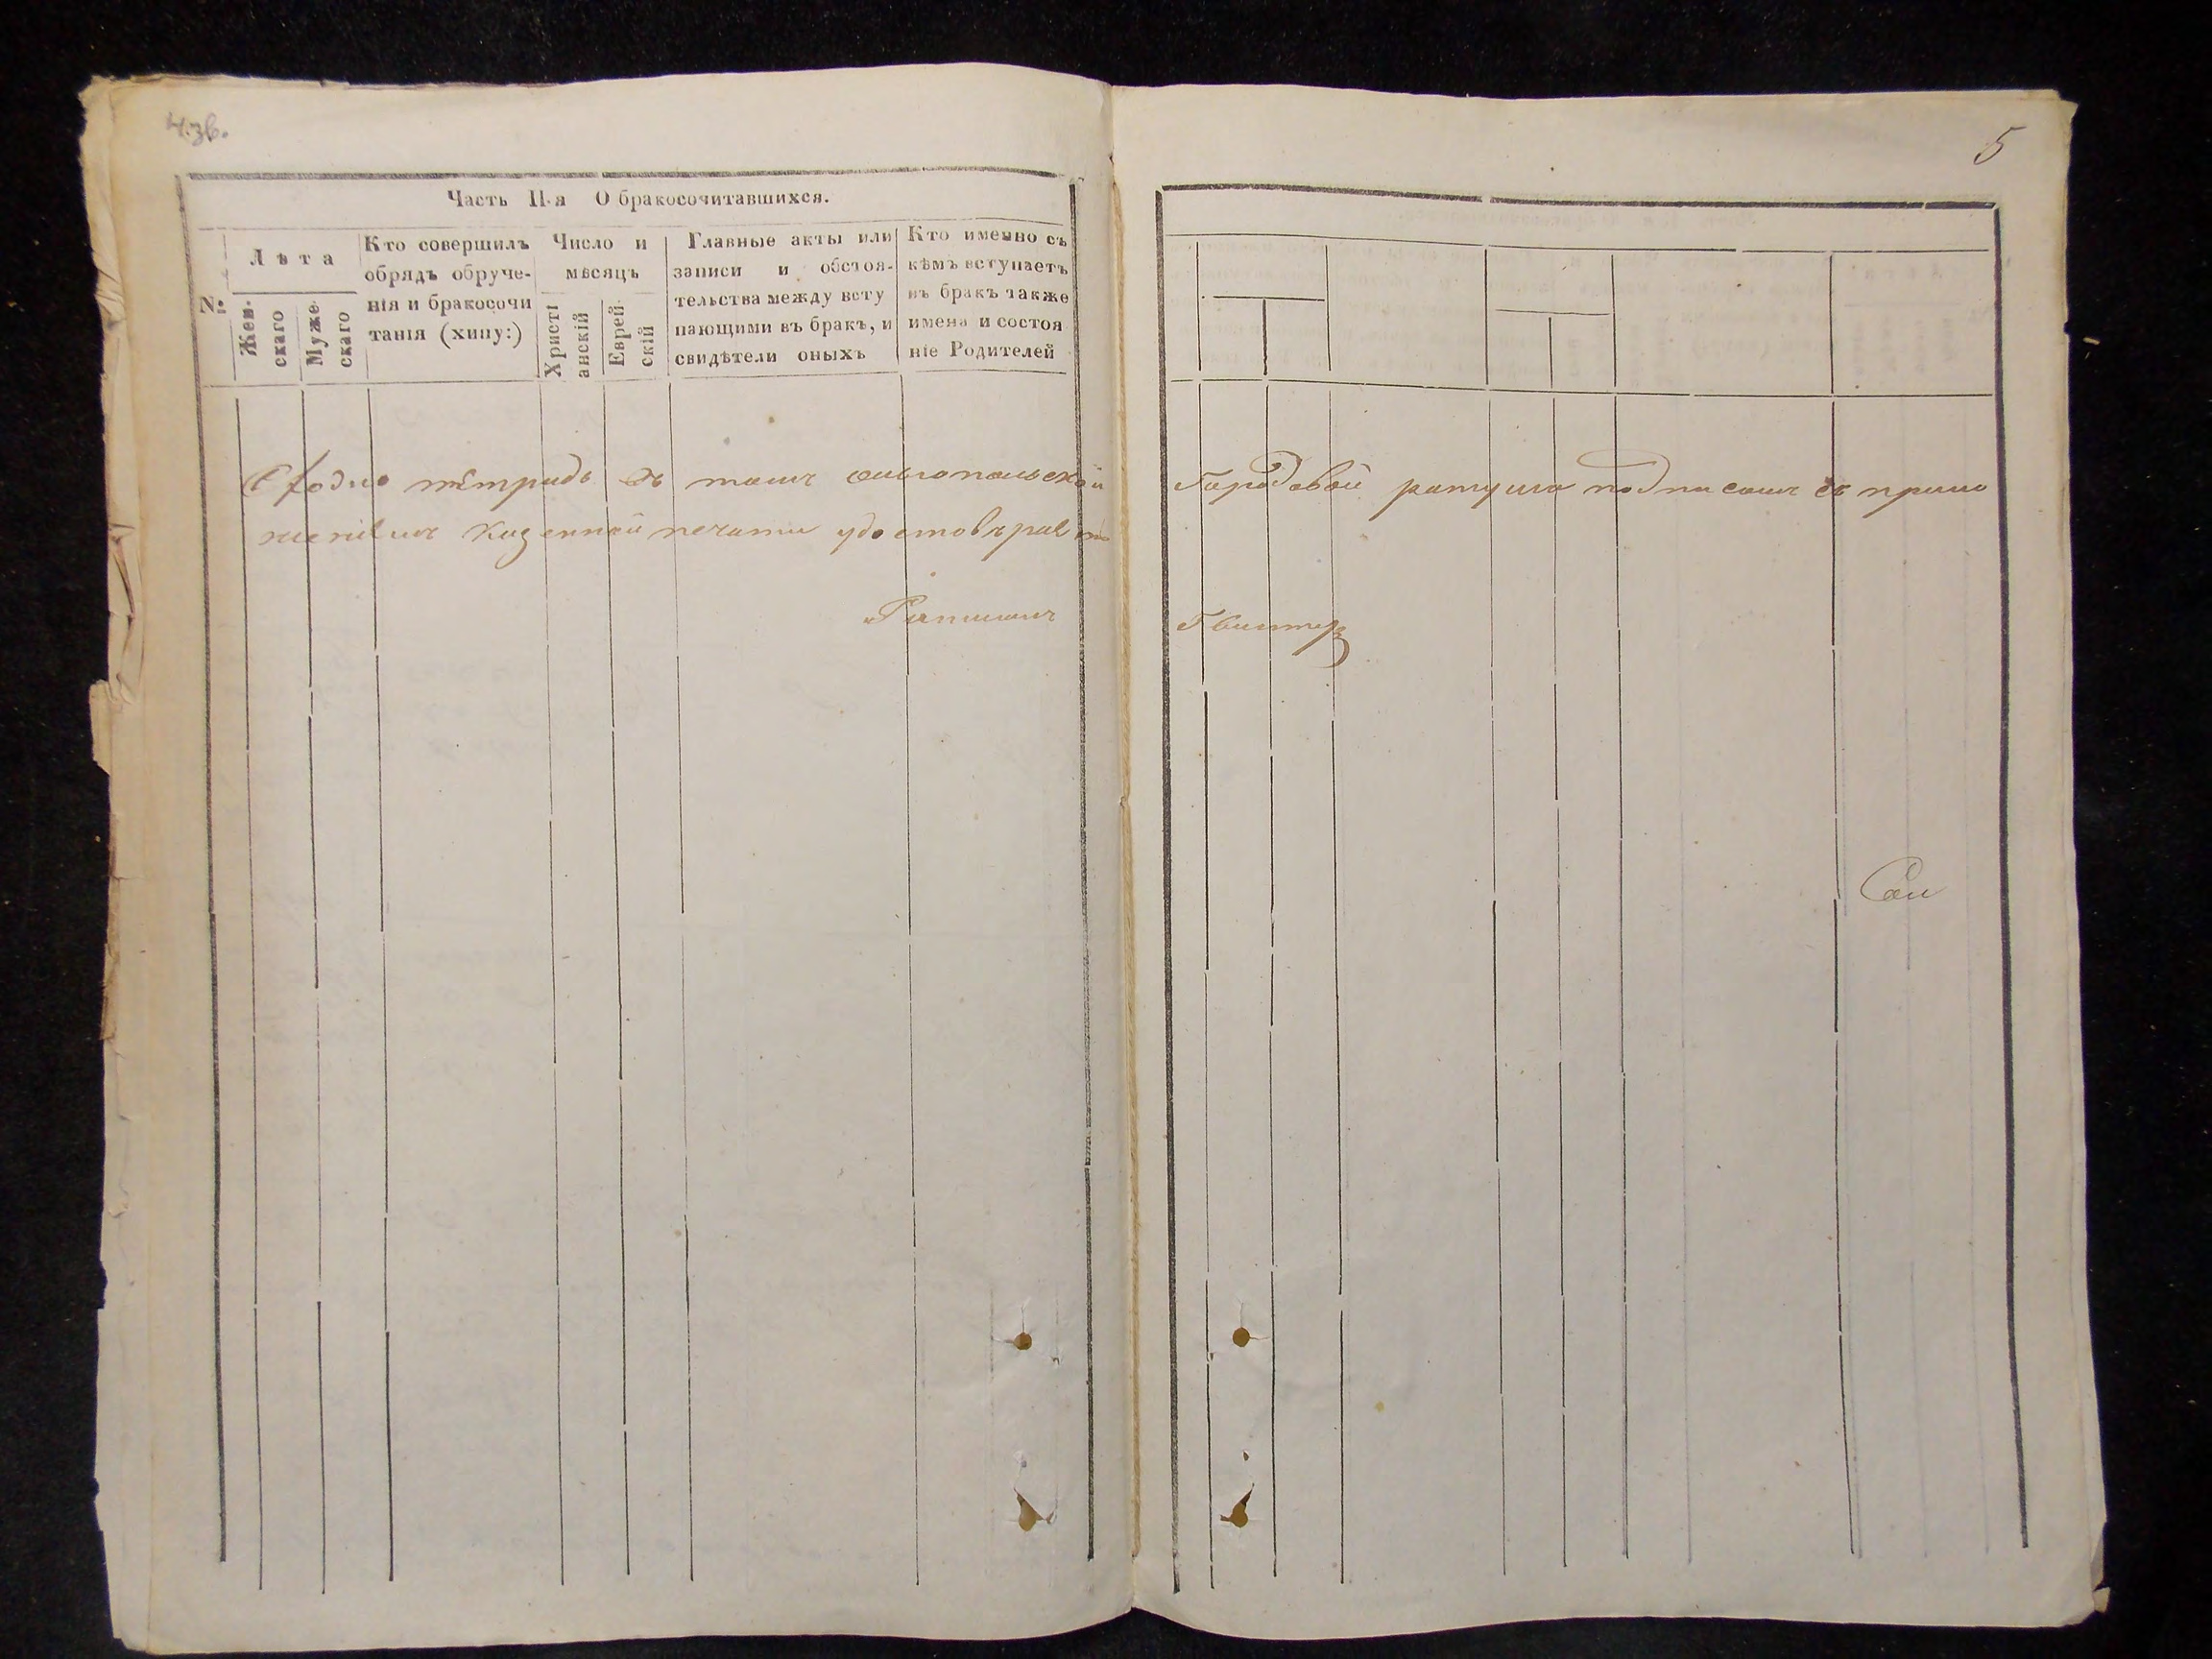 4 зв.
5
Часть II-я О бракосочитавшихся.
№
Лѣта
Жен-
скаго
Муже
скаго
Кто совершилъ
обрядъ обруче-
нія и бракосочи
танія (хипу:)
Число и
мѣсяцъ
Христі
анскій
Еврей-
скій
Главные акты или
записи и обстоя-
тельства между всту
пающими въ бракъ, и
свидѣтели оныхъ
Кто именно съ
кѣмъ вступаетъ
въ бракъ также
имена и состоя
ніе Родителей
тетрадь въ томъ Ольгопольской Городовой ратуша подписомъ съ прило
женіемъ Казенной печати удостовѣряетъ
Ратманъ